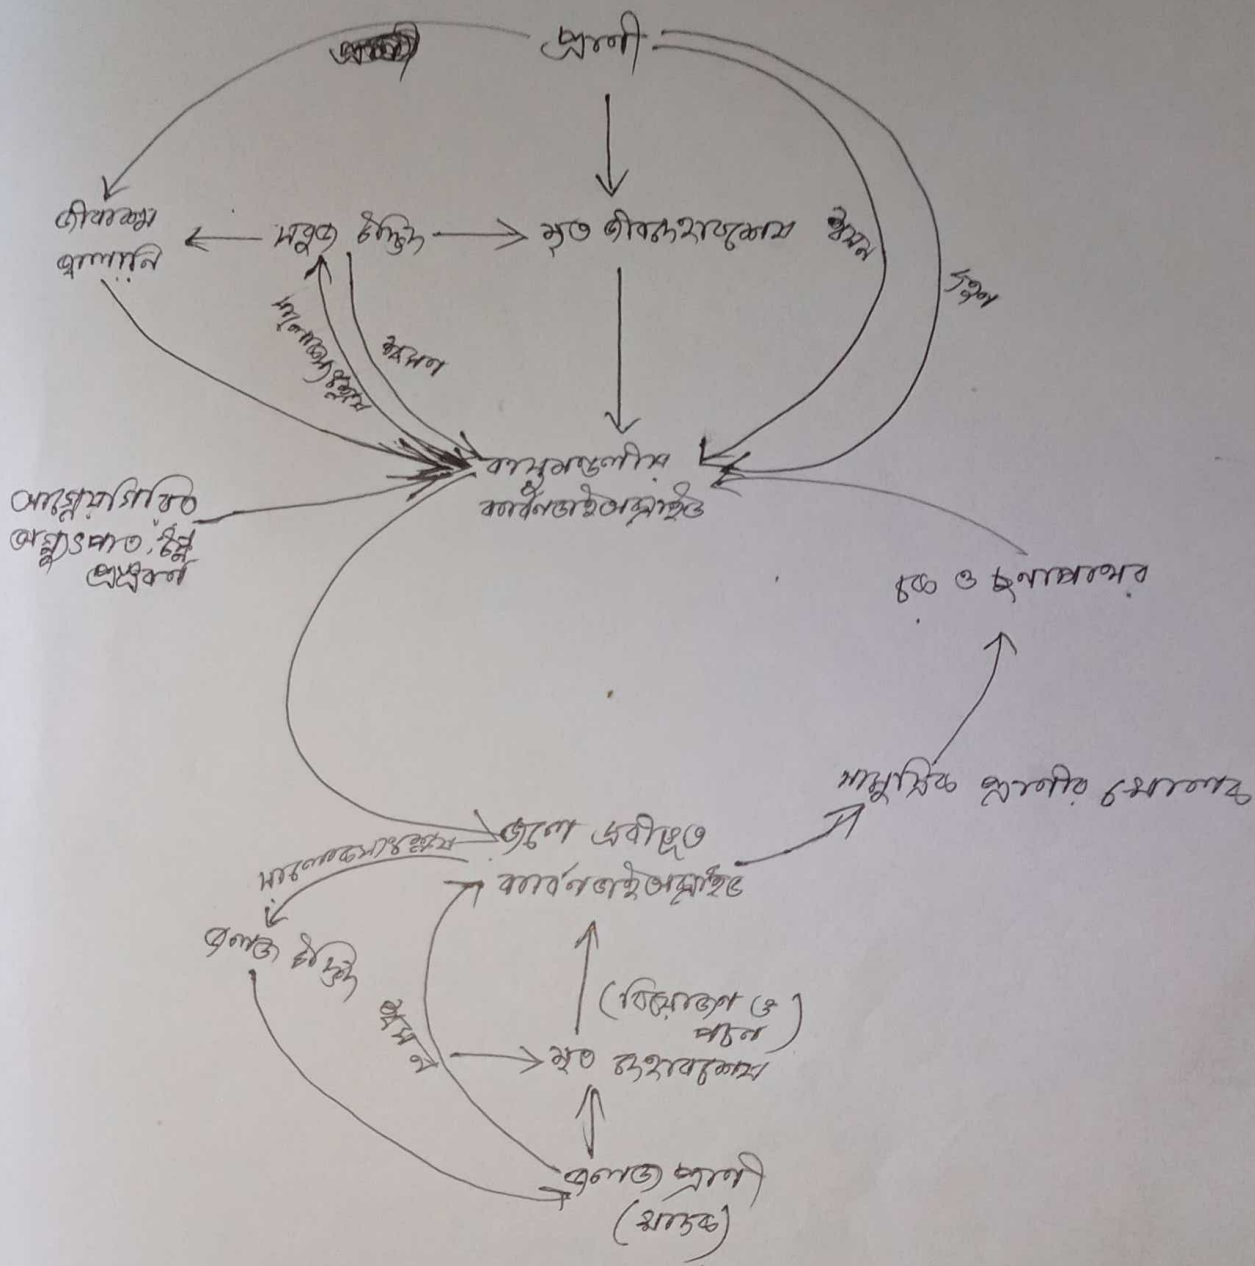 প্রাণী
জীবাশ্ম
জ্বালানি
সবুজ উদ্ভিদ
মৃত জীবদেহাবশেষ
শ্বসন
দহন
সালোকসংশ্লেষ
শ্বসন
বায়ুমণ্ডলীয়
কার্বনডাইঅক্সাইড
আগ্নেয়গিরির
অগ্ন্যুৎপাত, উষ্ণ
প্রস্রবণ
চক ও চুনাপাথর
সামুদ্রিক প্রাণীর খোলক
জলে দ্রবীভূত
কার্বনডাইঅক্সাইড
সালোকসংশ্লেষ
জলজ উদ্ভিদ
শ্বসন
(বিয়োজন ও
পচন)
মৃত দেহাবশেষ
জলজ প্রাণী
(খাদক)